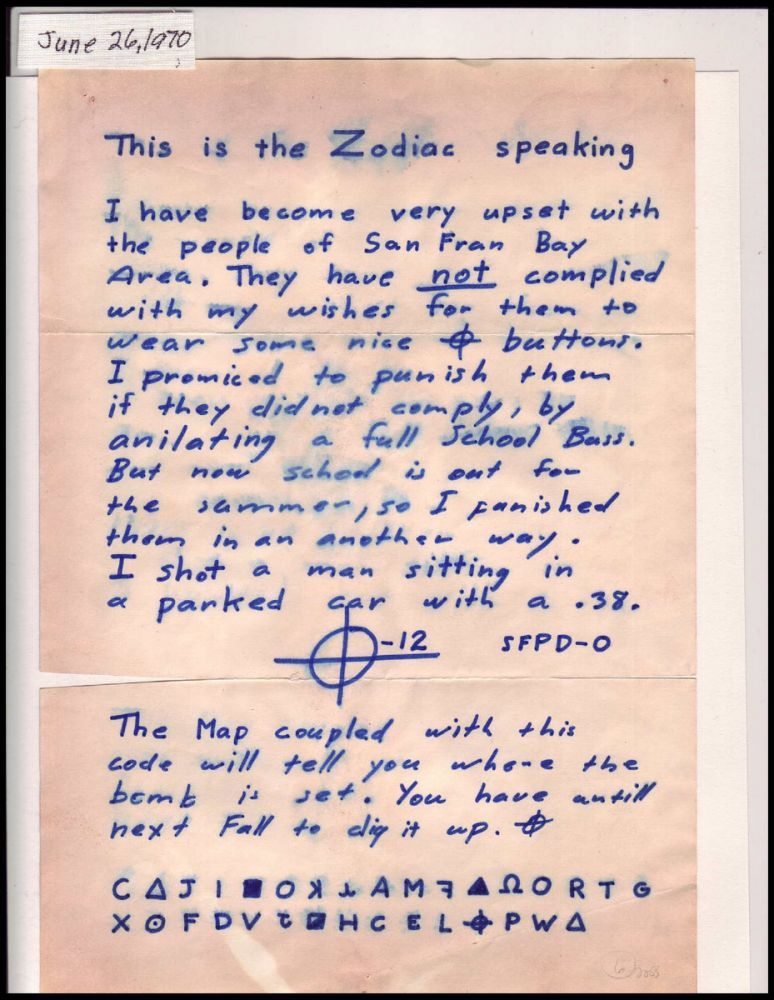 June 26, 1970
This is the Zodiac speaking
I have become very upset with
the people of San Fran Bay
Area. They have not complied
with my wishes for them to
wear some nice ⌖ buttons.
I promiced to punish them
if they did not comply, by
anilating a full School Buss.
But now school is out for
the summer, so I punished
them in an another way.
I shot a man sitting in
a parked car with a .38.
⌖-12 SFPD-0
The Map coupled with this
code will tell you where the
bomb is set. You have untill
next Fall to dig it up. ⌖
C Δ J I ■ O ꓘ ⅄ A M ꟻ ▲ Ω O R T G
X ⊙ F D V Ɛ ◪ H C E L ⌖ P W Δ